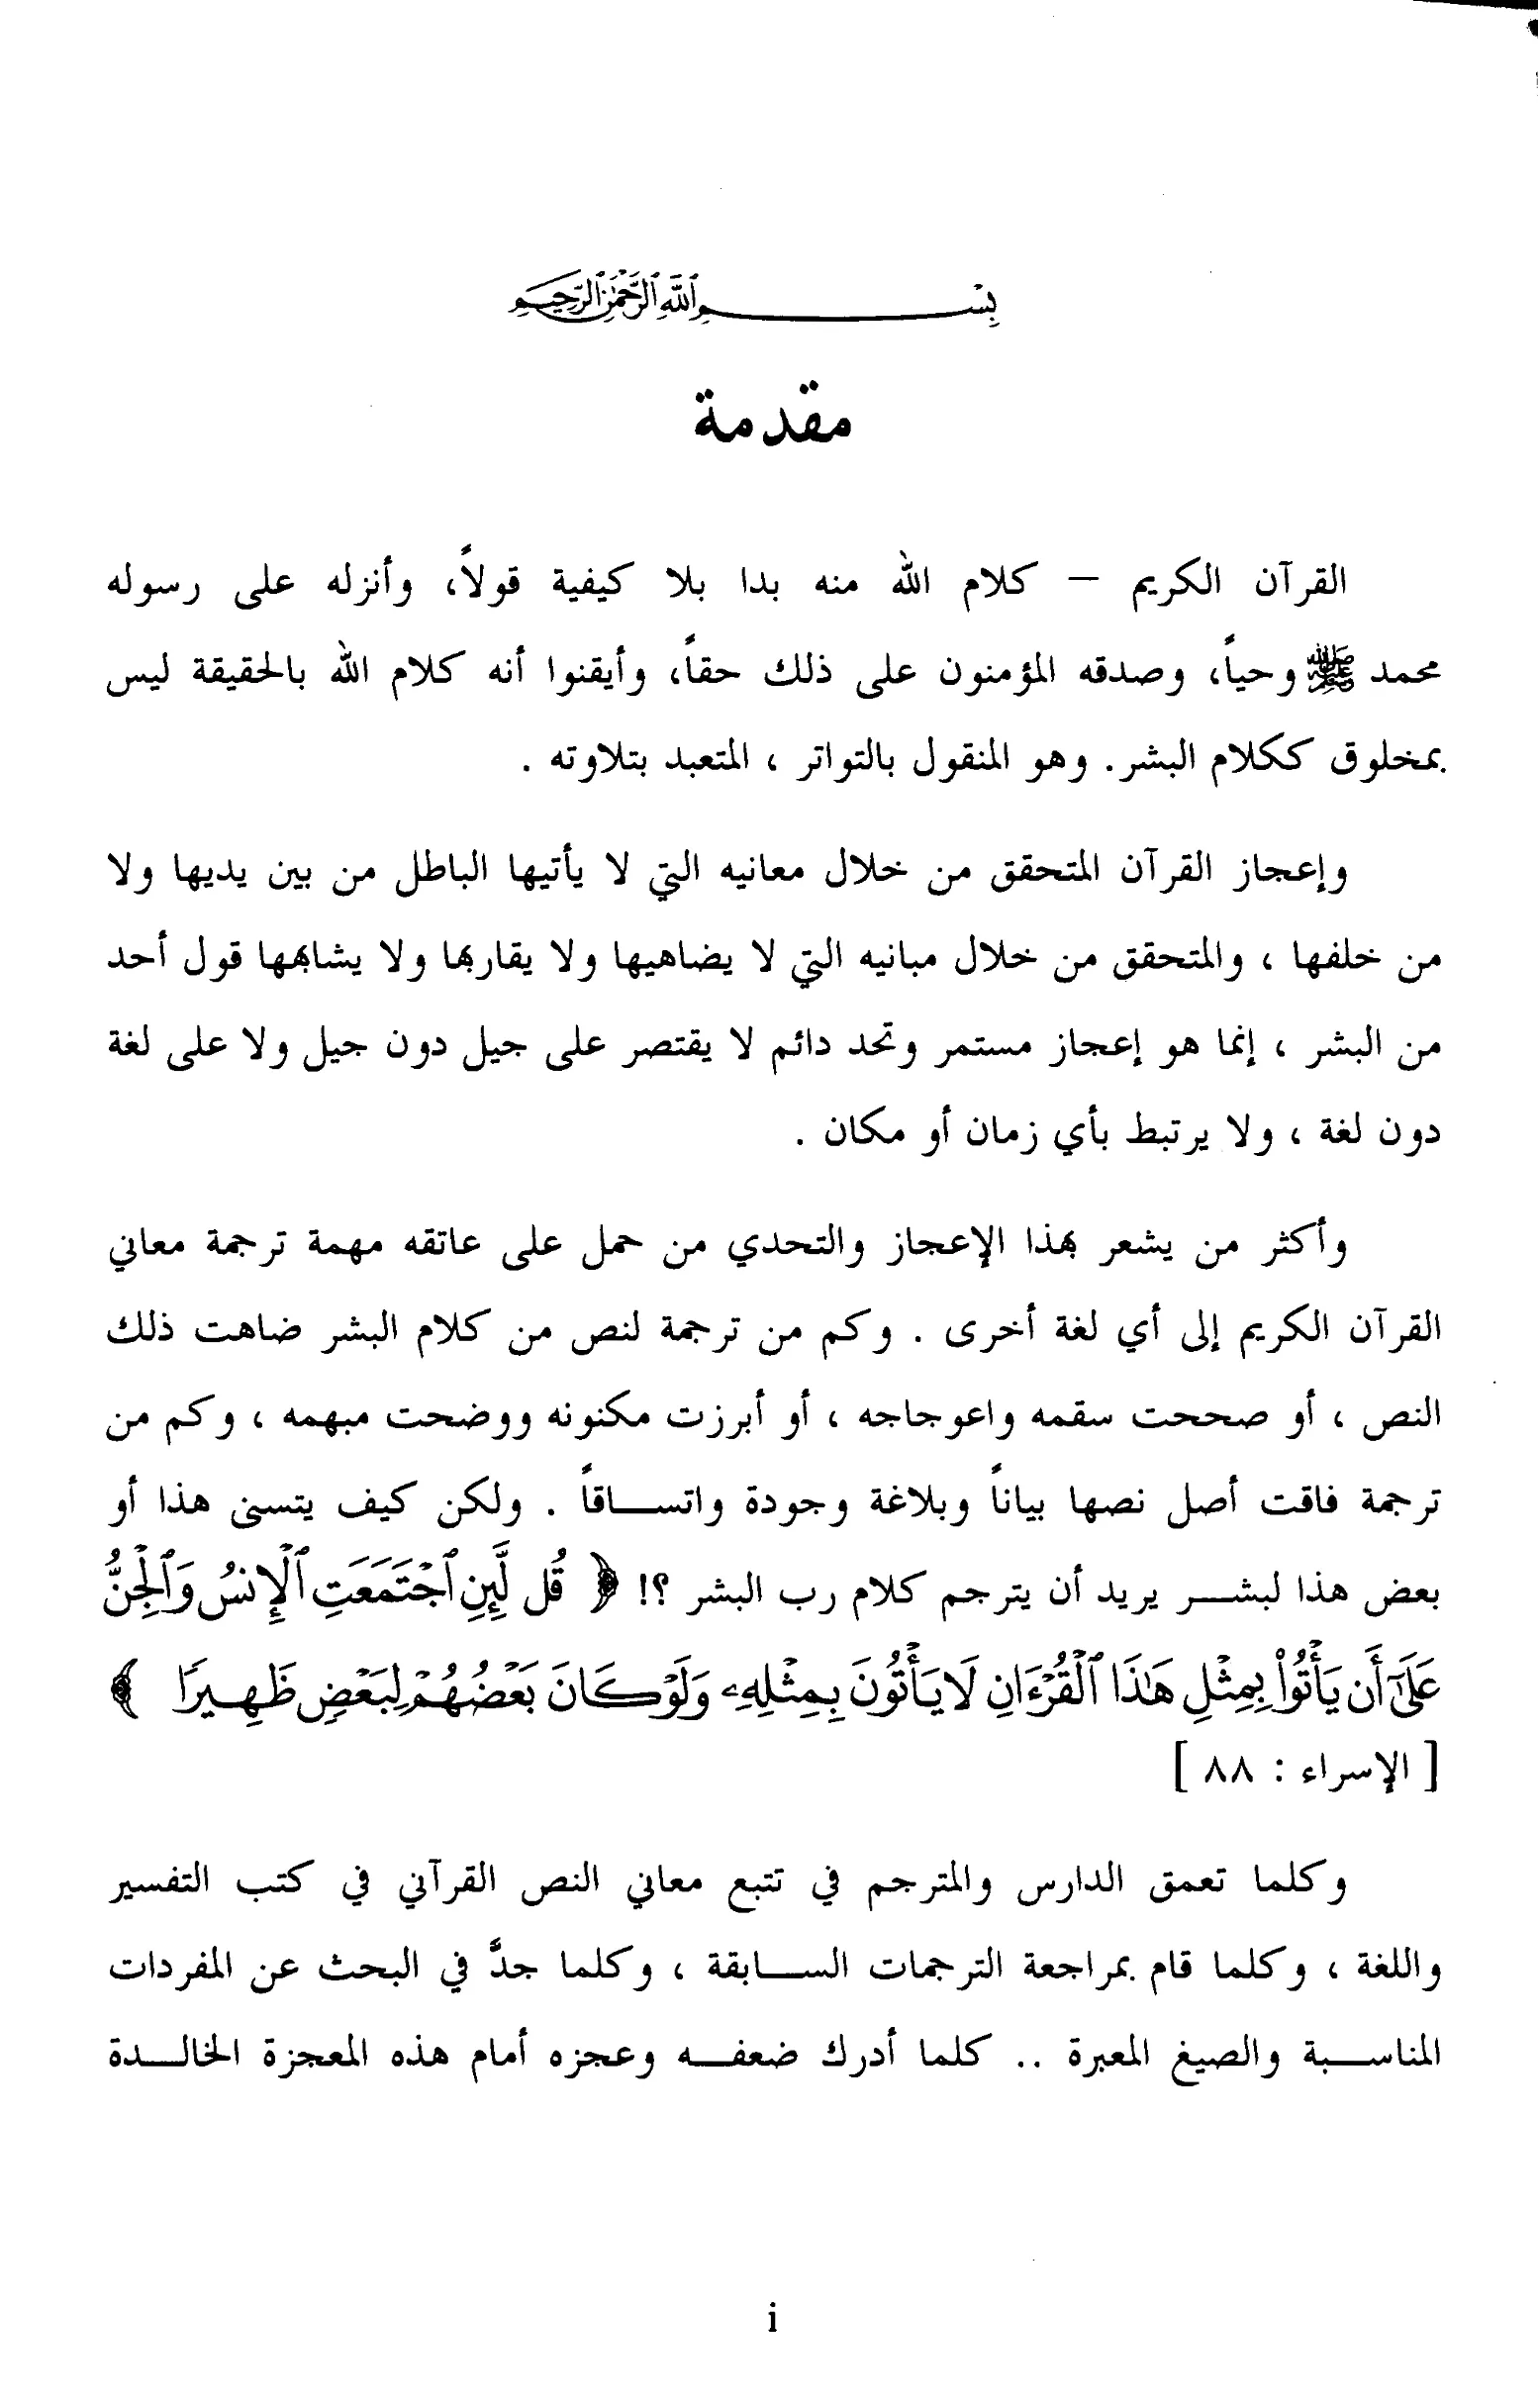 بِسْمِ ٱللَّهِ ٱلرَّحْمَٰنِ ٱلرَّحِيمِ
مقدمة
القرآن الكريم – كلام الله منه بدا بلا كيفية قولاً، وأنزله على رسوله
محمد ﷺ وحياً، وصدقه المؤمنون على ذلك حقاً، وأيقنوا أنه كلام الله بالحقيقة ليس
بمخلوق ككلام البشر. وهو المنقول بالتواتر ، المتعبد بتلاوته .
وإعجاز القرآن المتحقق من خلال معانيه التي لا يأتيها الباطل من بين يديها ولا
من خلفها ، والمتحقق من خلال مبانيه التي لا يضاهيها ولا يقاربها ولا يشابهها قول أحد
من البشر ، إنما هو إعجاز مستمر وتحد دائم لا يقتصر على جيل دون جيل ولا على لغة
دون لغة ، ولا يرتبط بأي زمان أو مكان .
وأكثر من يشعر بهذا الإعجاز والتحدي من حمل على عاتقه مهمة ترجمة معاني
القرآن الكريم إلى أي لغة أخرى . وكم من ترجمة لنص من كلام البشر ضاهت ذلك
النص ، أو صححت سقمه واعوجاجه ، أو أبرزت مكنونه ووضحت مبهمه ، وكم من
ترجمة فاقت أصل نصها بياناً وبلاغة وجودة واتساقاً . ولكن كيف يتسنى هذا أو
بعض هذا لبشر يريد أن يترجم كلام رب البشر ؟! ﴿ قُل لَّئِنِ ٱجْتَمَعَتِ ٱلْإِنسُ وَٱلْجِنُّ
عَلَىٰٓ أَن يَأْتُوا۟ بِمِثْلِ هَٰذَا ٱلْقُرْءَانِ لَا يَأْتُونَ بِمِثْلِهِۦ وَلَوْ كَانَ بَعْضُهُمْ لِبَعْضٍ ظَهِيرًا ﴾
[ الإسراء : ٨٨ ]
وكلما تعمق الدارس والمترجم في تتبع معاني النص القرآني في كتب التفسير
واللغة ، وكلما قام بمراجعة الترجمات السابقة ، وكلما جدَّ في البحث عن المفردات
المناسبة والصيغ المعبرة .. كلما أدرك ضعفه وعجزه أمام هذه المعجزة الخالدة
i